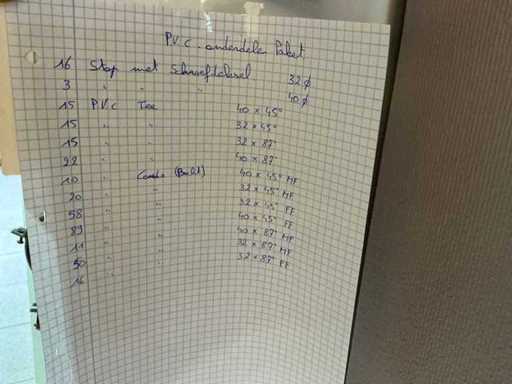 P.V.C - onderdele Paket
16 Stop met Schroefdeksel 32 ø
3 " " " 40 ø
15 P.V.C Tee 40 x 45°
15 " " 32 x 45°
15 " " 32 x 87°
22 " " 40 x 87°
10 " (Bocht) 40 x 45° MF
20 " " 32 x 45° MF
58 " " 32 x 45° FF
89 " " 40 x 45° FF
11 " " 40 x 87° MF
50 " " 32 x 87° MF
16 " " 32 x 87° FF